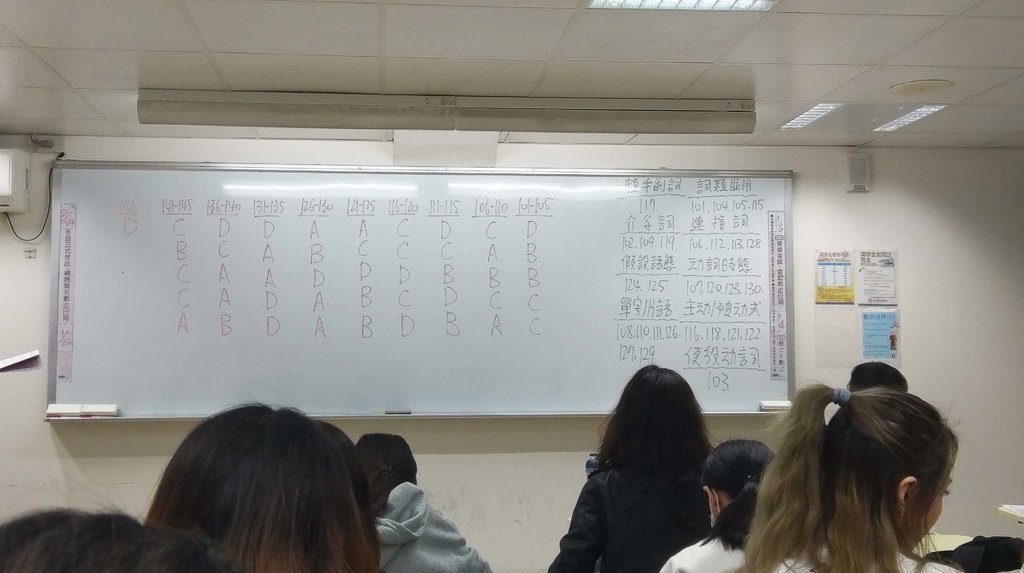 146 141-145 136-140 131-135 126-130 121-125 116-120 111-115 106-110 101-105
D C D D A A C D C D
B C A B C C C A B
C A A D D D B B B
C A D A B C D C C
A B D A B D B A C
頻率副詞 詞類應用
117 101.104.105.115
介系詞 連接詞
102.109.119 106.112.113.128
假設語態 动詞時態
124.125 107.120.123.130
單字片語 主动/被动式
108.110.111.126 116.118.121.122
127.129 使役动詞
103